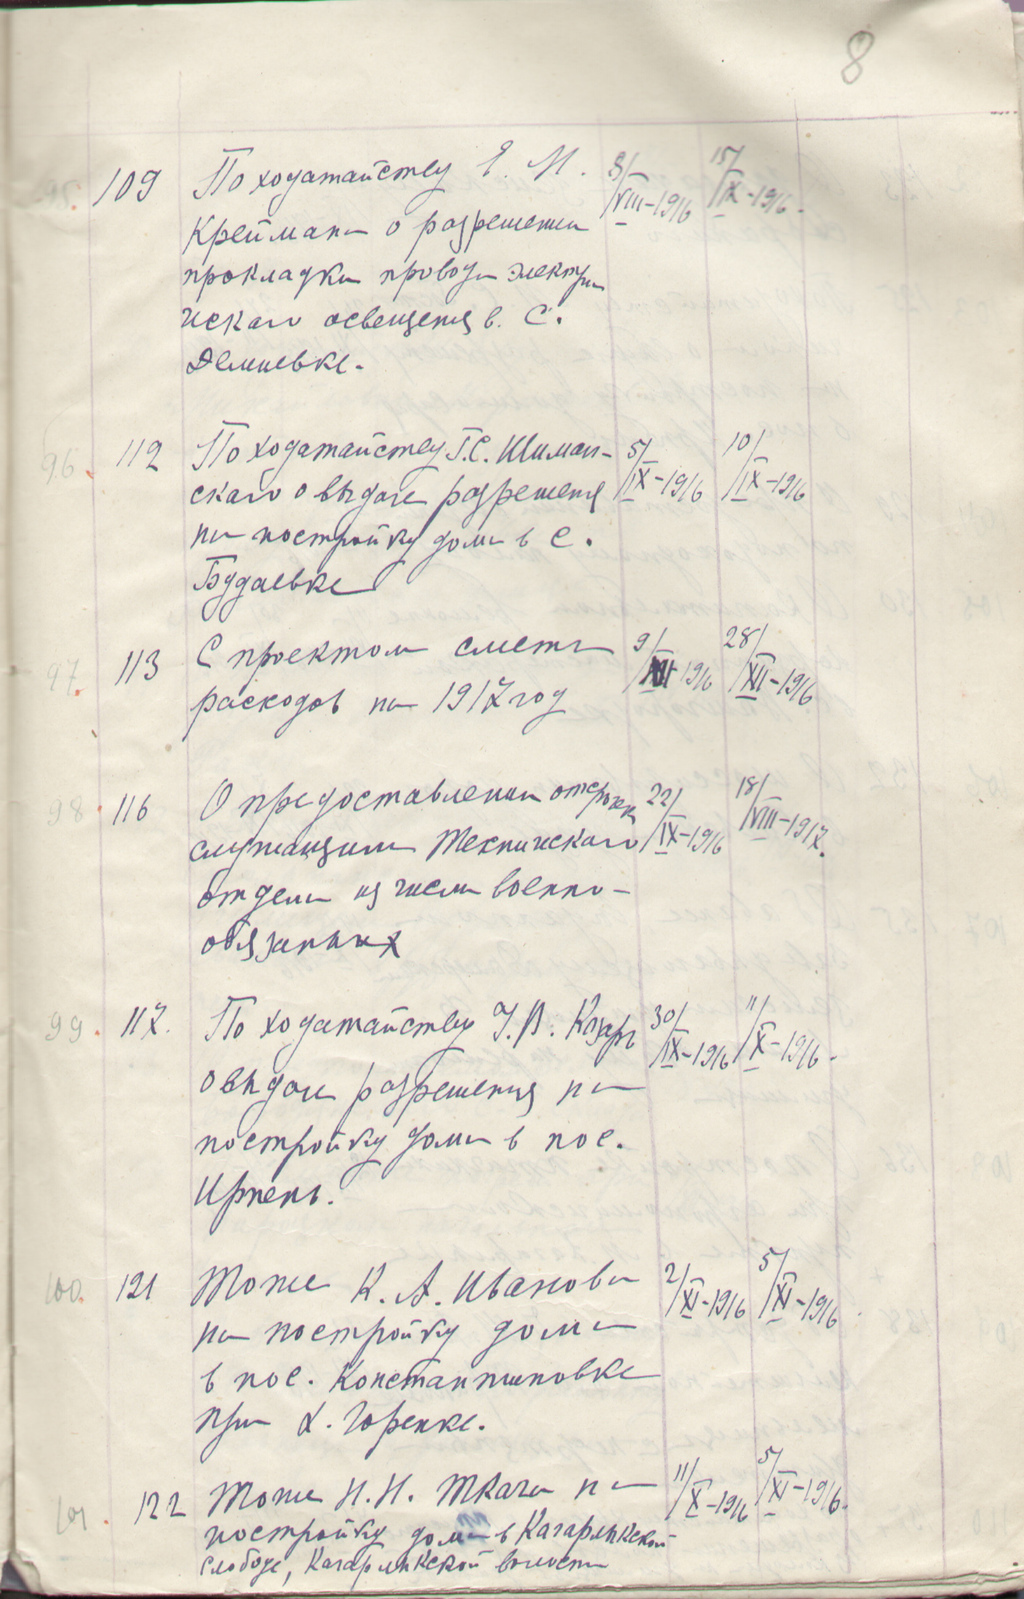 8
95. 109 По ходатайству Е. М. 3/VIII-1916 15/IX-1916.
Креймана о разрешении
прокладки провода электри
ческаго освещения в. С.
Демиевке.
96. 112 По ходатайству Г.С. Шиман- 5/IX-1916 10/IX-1916
скаго о выдаче разрешения
на постройку дома в с.
Будаевке
97. 113 С проектом сметы 9/XII-1916 28/XII-1916
расходов на 1917 год
98. 116 О предоставлении отсрочки 22/IX-1916 18/VIII-1917.
служащим Технического
отдела из числа военно-
обязанных
99. 117. По ходатайству В. 30/IX-1916 11/X-1916.
о выдаче разрешения на
постройку дома в пос.
Ирпень.
100. 121 Тоже К. А. Иванова 2/XI-1916 5/XI-1916
на постройку дома
в пос. Константиновке
при х. Горенке.
101. 122 Тоже Н.Н. Ткача на 11/X-1916 5/XI-1916.
постройку дома в Кагарлыкской
слободе, Кагарлыкской волости